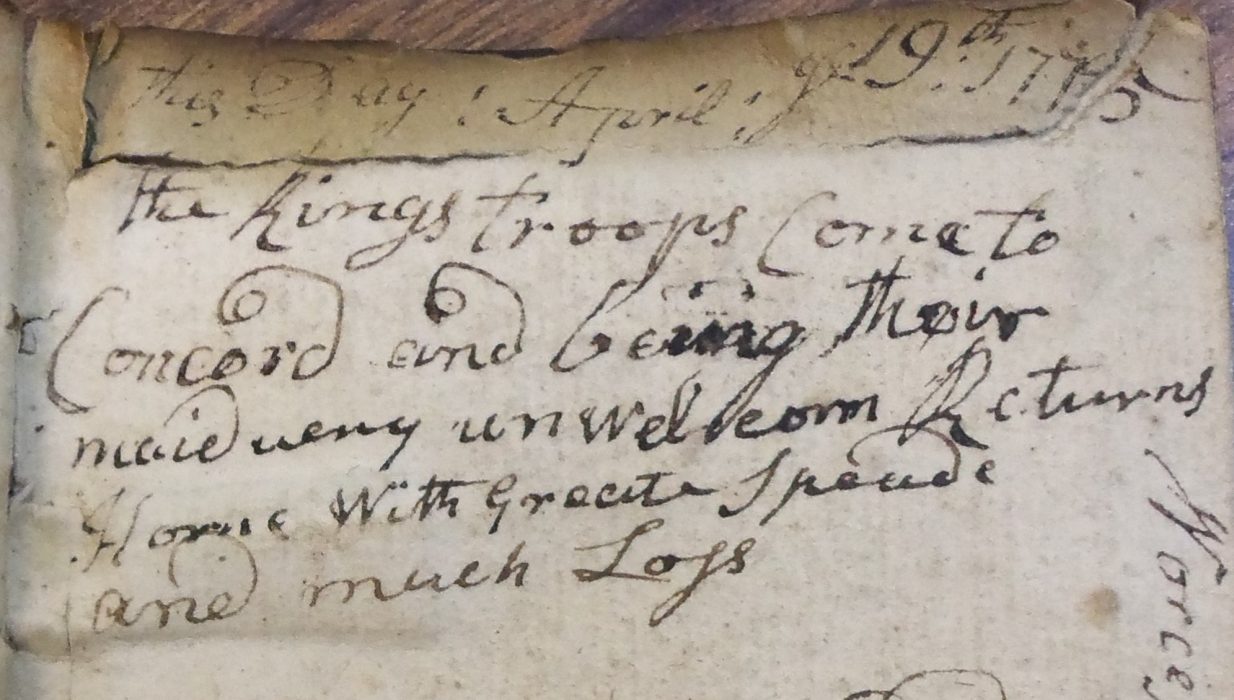 This Day : April : ye 19th : 1775
the Kings troops Come to
Concord and being their
maid uery unwelcom Returns
Home With Greate Speade
and much Loss